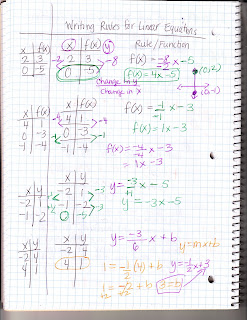 Writing Rules for Linear Equations
x f(x) x f(x) y Rule/Function
2 3 -2 2 3 -8 f(x) = -8/-2 x - 5
0 -5 0 -5 f(x) = 4x - 5 (0,2)
Change in y
Change in x (0,-1)
x f(x) x f(x) f(x) = -1/-1 x - 3
4 1 4 1 -4 f(x) = 1x - 3
0 -3 0 -3 -1
-1 -4 -1 -4 f(x) = -4/-4 x - 3
= 1x - 3
x y x y y = -3/+1 x - 5
-2 1 +1 -2 1 -3 y = -3x - 5
-1 -2 +1 -1 -2 -3
0 -5
x y x y y = -3/6 x + b
-2 4 -2 4 y = mx + b
4 1 4 1 1 = -1/2 (4) + b y = -1/2 x + 3
1 = -2 + b 3 = b